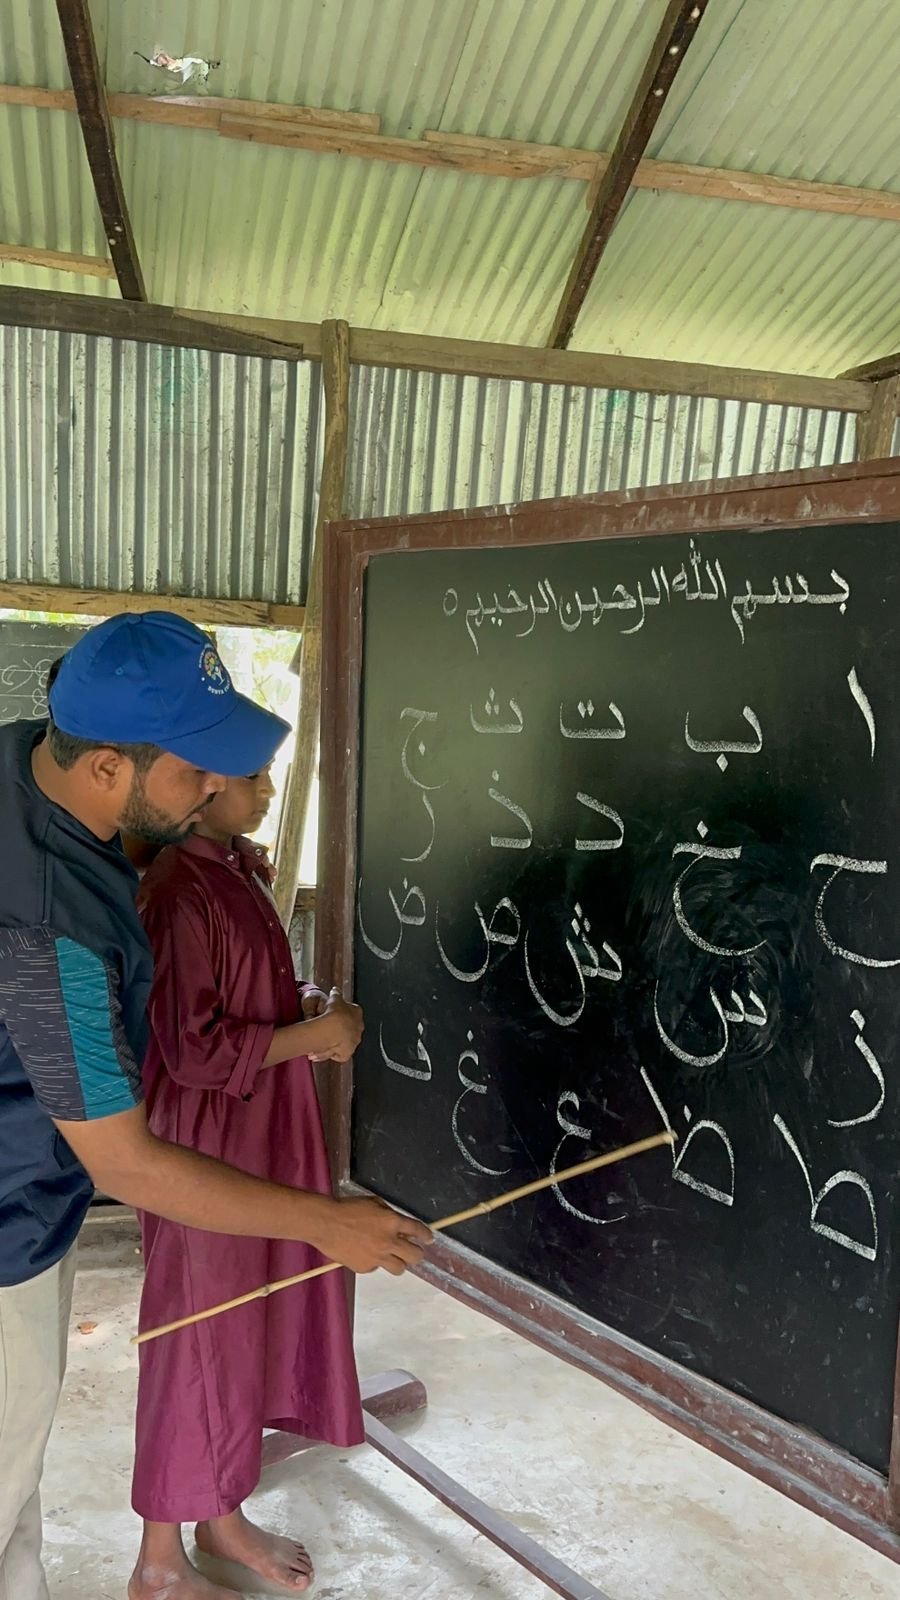 بسم الله الرحمن الرحيم ٥
ا ب ت ث ج
ح خ د ذ ر
ز س ش ص ض
ط ظ ع غ ف